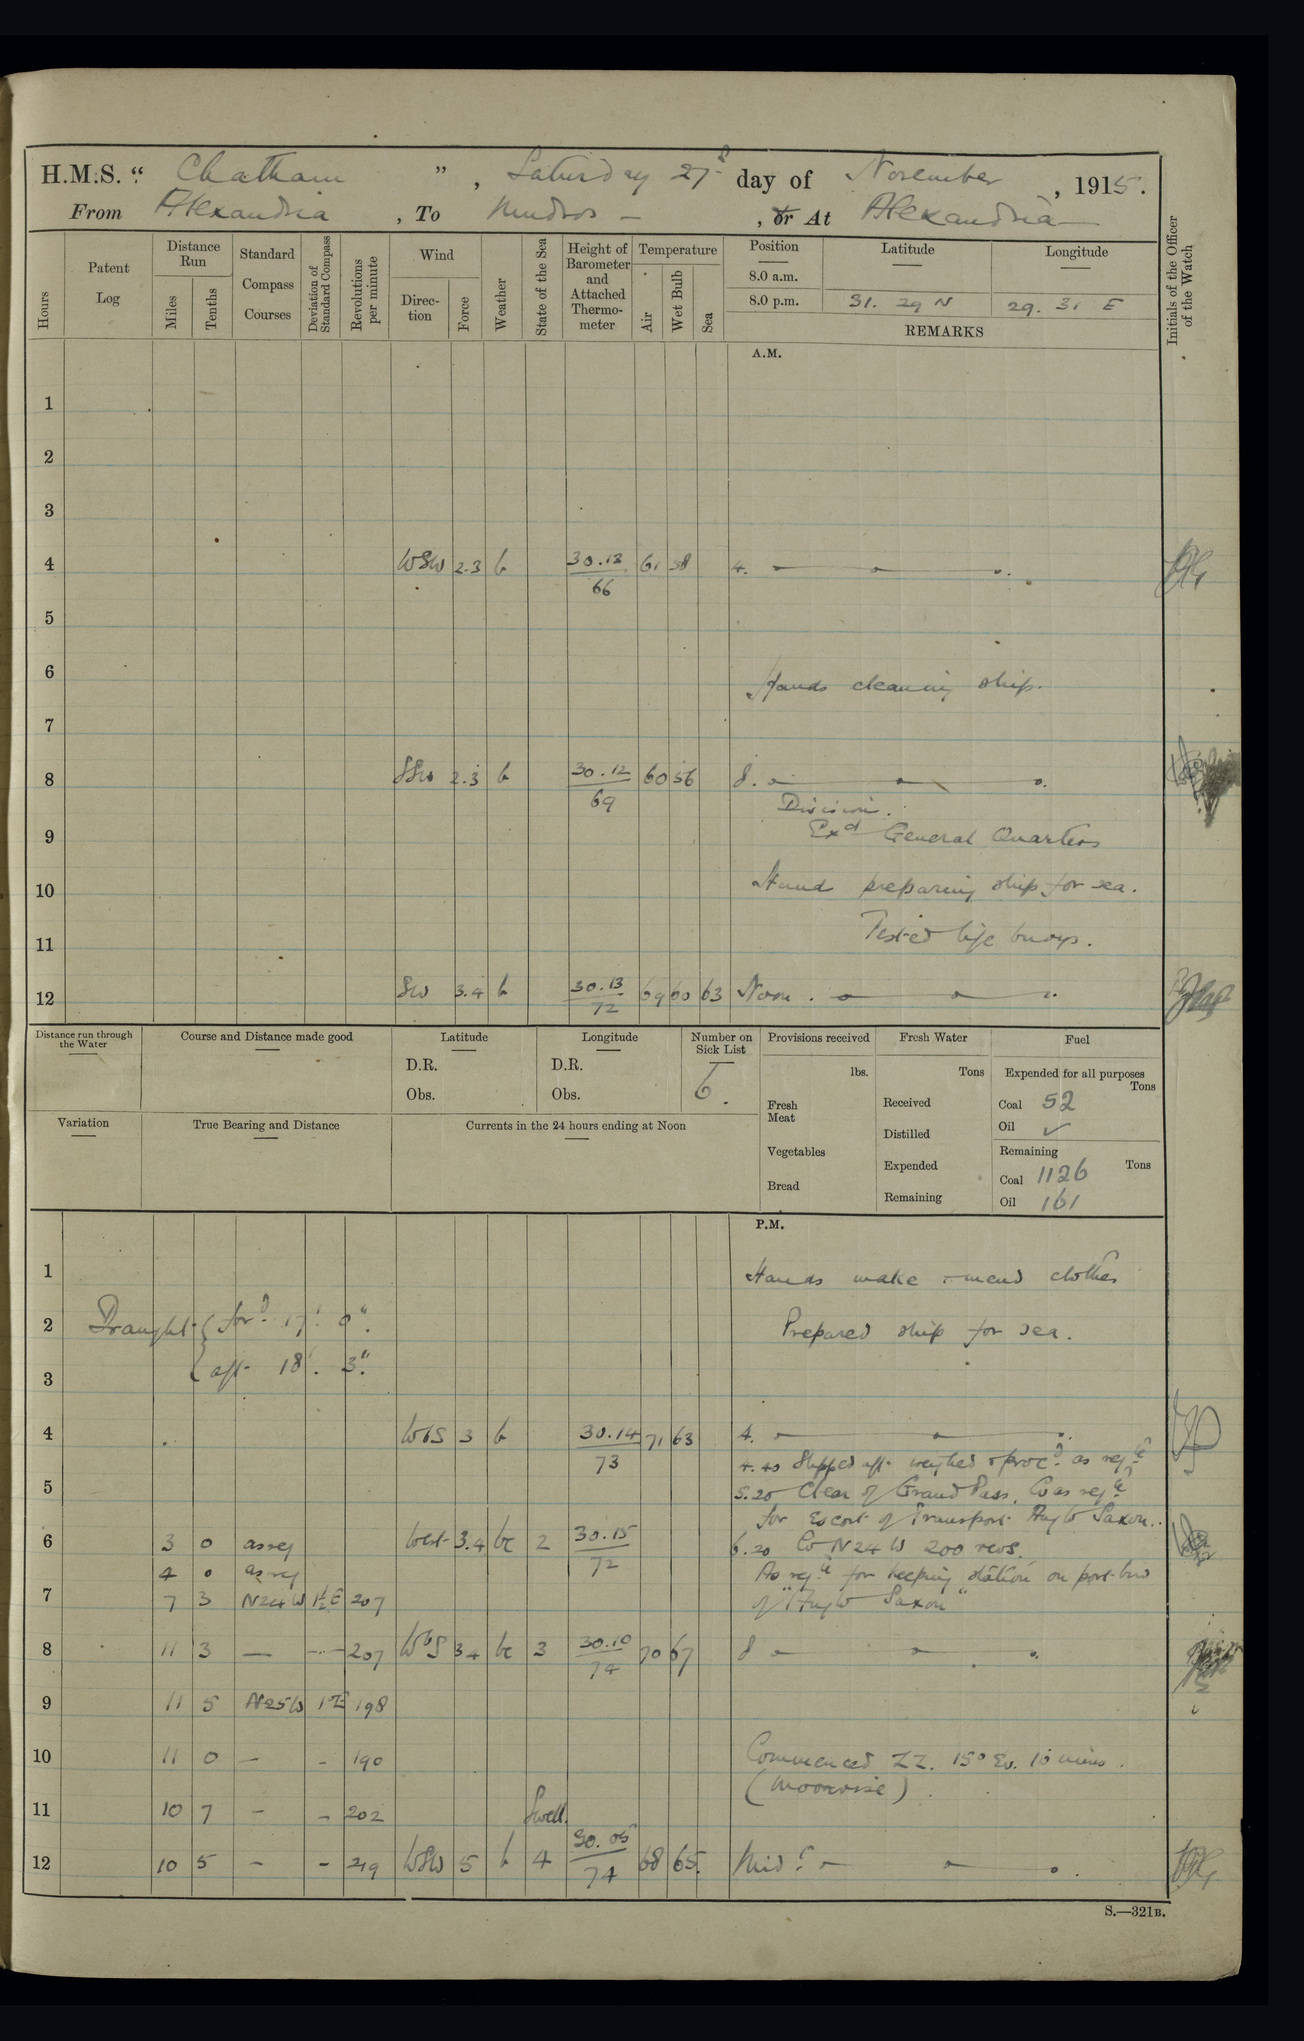 H.M.S. “ Chatham ” , Saturday 27th day of November , 1915.
From Alexandria , To Mudros — , or At Alexandria —
Hours
Patent Log
Distance Run
Miles
Tenths
Standard Compass Courses
Deviation of Standard Compass
Revolutions per minute
Wind
Direc-tion
Force
Weather
State of the Sea
Height of Barometer and Attached Thermo-meter
Temperature
Air
Wet Bulb
Sea
Position
8.0 a.m.
8.0 p.m.
Latitude
31. 29 N
Longitude
29. 31 E
REMARKS
Initials of the Officer of the Watch
A.M.
1
2
3
4 WSW 2.3 b 30.13 61 58 4.
66
5
6
Hands cleaning ship.
7
8 SSW 2.3 b 30.12 60 56 8.
69
Division.
9 Exd General Quarters
10 Hands preparing ship for sea.
11 Tested life buoys.
12 SW 3.4 b 30.13 69 60 63 Noon.
72
Distance run through the Water
Course and Distance made good
Latitude
D.R.
Obs.
Longitude
D.R.
Obs.
Number on Sick List
6.
Provisions received
lbs.
Fresh Meat
Vegetables
Bread
Fresh Water
Tons
Received
Distilled
Expended
Remaining
Fuel
Expended for all purposes
Tons
Coal 52
Oil ✓
Remaining
Tons
Coal 1126
Oil 161
Variation
True Bearing and Distance
Currents in the 24 hours ending at Noon
P.M.
1 Hands make & mend clothes
2 Draught { ford. 17' 0". Prepared ship for sea.
3 { aft 18'. 3".
4 WbS 3 b 30.14 71 63 4.
73
4.40 Slipped aft weighed & procd. as reqte
5 5.20 Clear of Grand Pass. Co as reqte
for Escort of Transport Anglo Saxon.
6 3 0 as req West 3.4 bc 2 30.15 6.20 Co N24W 200 revs.
72
4 0 as req As reqte for keeping station on port bow
7 7 3 N24W 1½E 207 of "Anglo Saxon"
8 11 3 — — 207 WbS 3.4 bc 3 30.10 70 67 8
74
9 11 5 N25W 1°E 198
10 11 0 — – 190 Commenced ZZ. 15° Ev. 10 mins.
(Moonrise)
11 10 7 – – 202 Swell.
12 10 5 – – 219 WSW 5 b 4 30.05 68 65. Midt.
74
S.—321B.